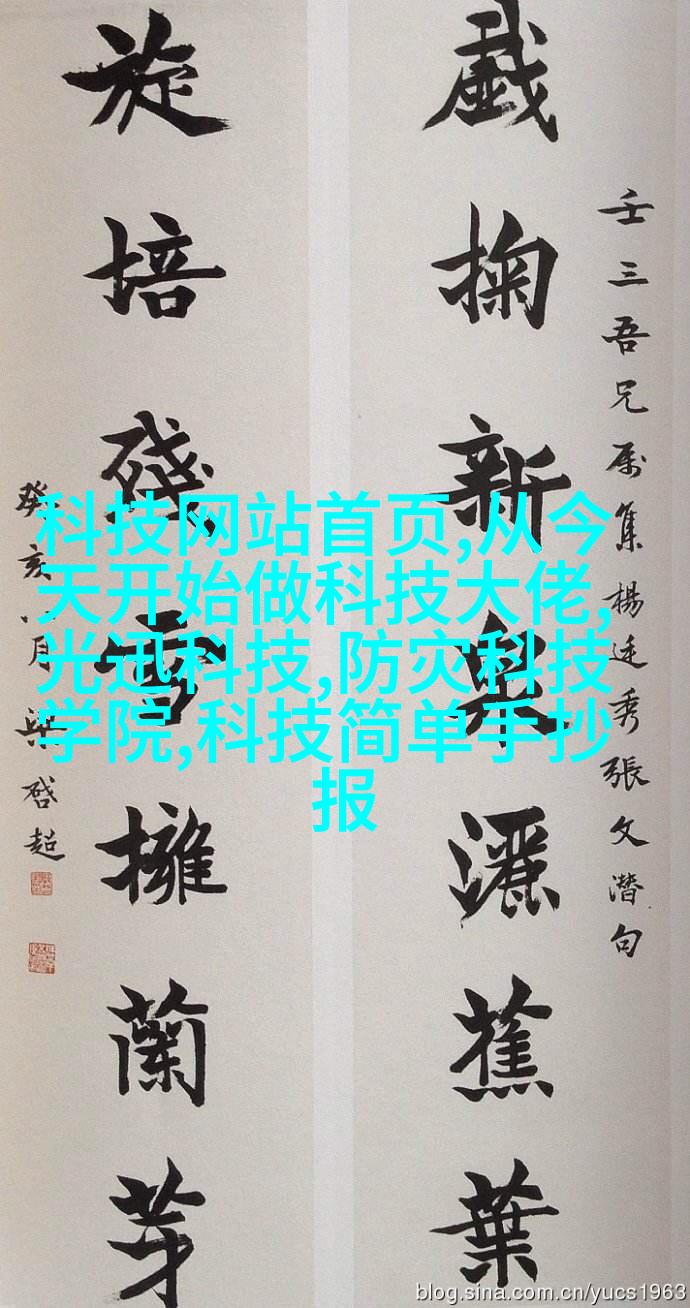 壬三吾兄属集楊廷秀張文潛句
戲掬新泉灑蕉葉
旋培殘雪擁蘭芽
癸亥八月梁啓超
科技网站首页,从今
天开始做科技大佬,
光迅科技,防灾科技
学院,科技简单手抄
报
blog.sina.com.cn/yucs1963